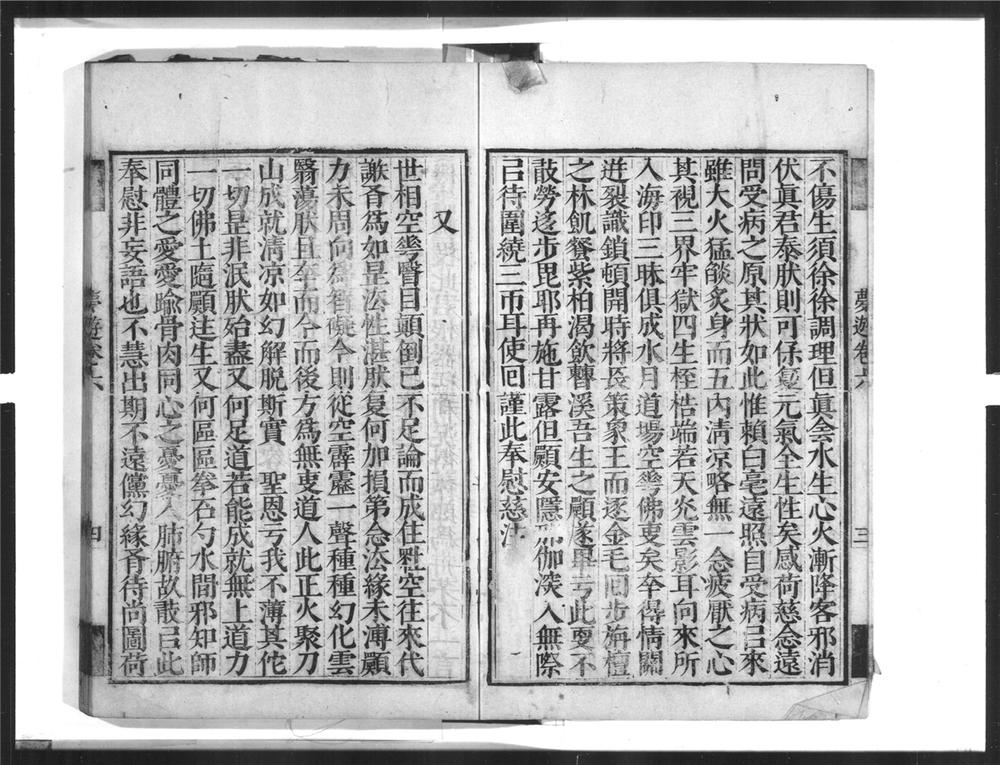 不傷生須徐徐調理但真会水生心火漸降客邪消
伏真君泰肰則可保复元氣全生性矣感荷慈念遠
問受病之原其狀如此惟賴白毫遠照自受病㠯來
雖大火猛𦦨炙身而五內清凉略無一念疲厭之心
其視三界牢獄四生桎梏端若天炎雲影耳向來所
入海印三昧俱成水月道場空𠌶佛叓矣夲得情關
迸裂識鎖頓開時將長策象王而逐金毛回步旃檀
之林飢餐紫柏渴飲轡溪吾生之願遂畢亏此叓不
敢勞迻步毘耶再施甘露但願安隱伽滐入無際
㠯待圍繞三帀耳使回謹此奉慰慈
又
世相空𠌶瞖目顛倒已不足論而成住壞空往來代
謝胥為如是㳒性湛肰复何加損第念㳒緣未溥願
力未周向為智礙今則從空霹靂一聲種種幻化雲
翳蕩肰且夲而今而後方為無叓道人此正火聚刀
山成就清凉如幻解脫斯實 聖恩亏我不薄其佗
一切是非泯肰始盡又何足道若能成就無上道力
一切佛土隨願迬生又何區區拳石勺水間邪知師
同體之愛愛踰骨肉同心之憂憂入肺腑故敢㠯此
奉慰非妄語也不慧出期不遠儻幻緣胥待尚圖荷
夢遊卷六
三
夢遊卷六
四